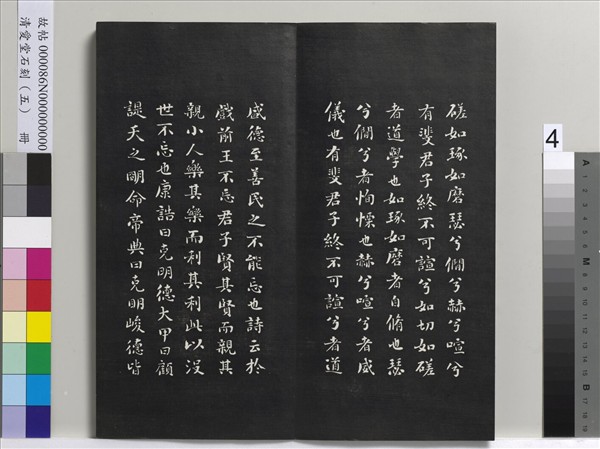 磋如琢如磨瑟兮僩兮赫兮喧兮
有斐君子終不可諠兮如切如磋
者道學也如琢如磨者自脩也瑟
兮僩兮者恂慄也赫兮喧兮者威
儀也有斐君子終不可諠兮者道
盛德至善民之不能忘也詩云於
戲前王不忘君子賢其賢而親其
親小人樂其樂而利其利此以沒
世不忘也康誥曰克明德大甲曰顧
諟天之明命帝典曰克明峻德皆
故帖 000086N000000000
清愛堂石刻(五) 冊
4
A 1 2 3 4 5 6 M 8 9 10 11 12 13 14 15 B 17 18 19